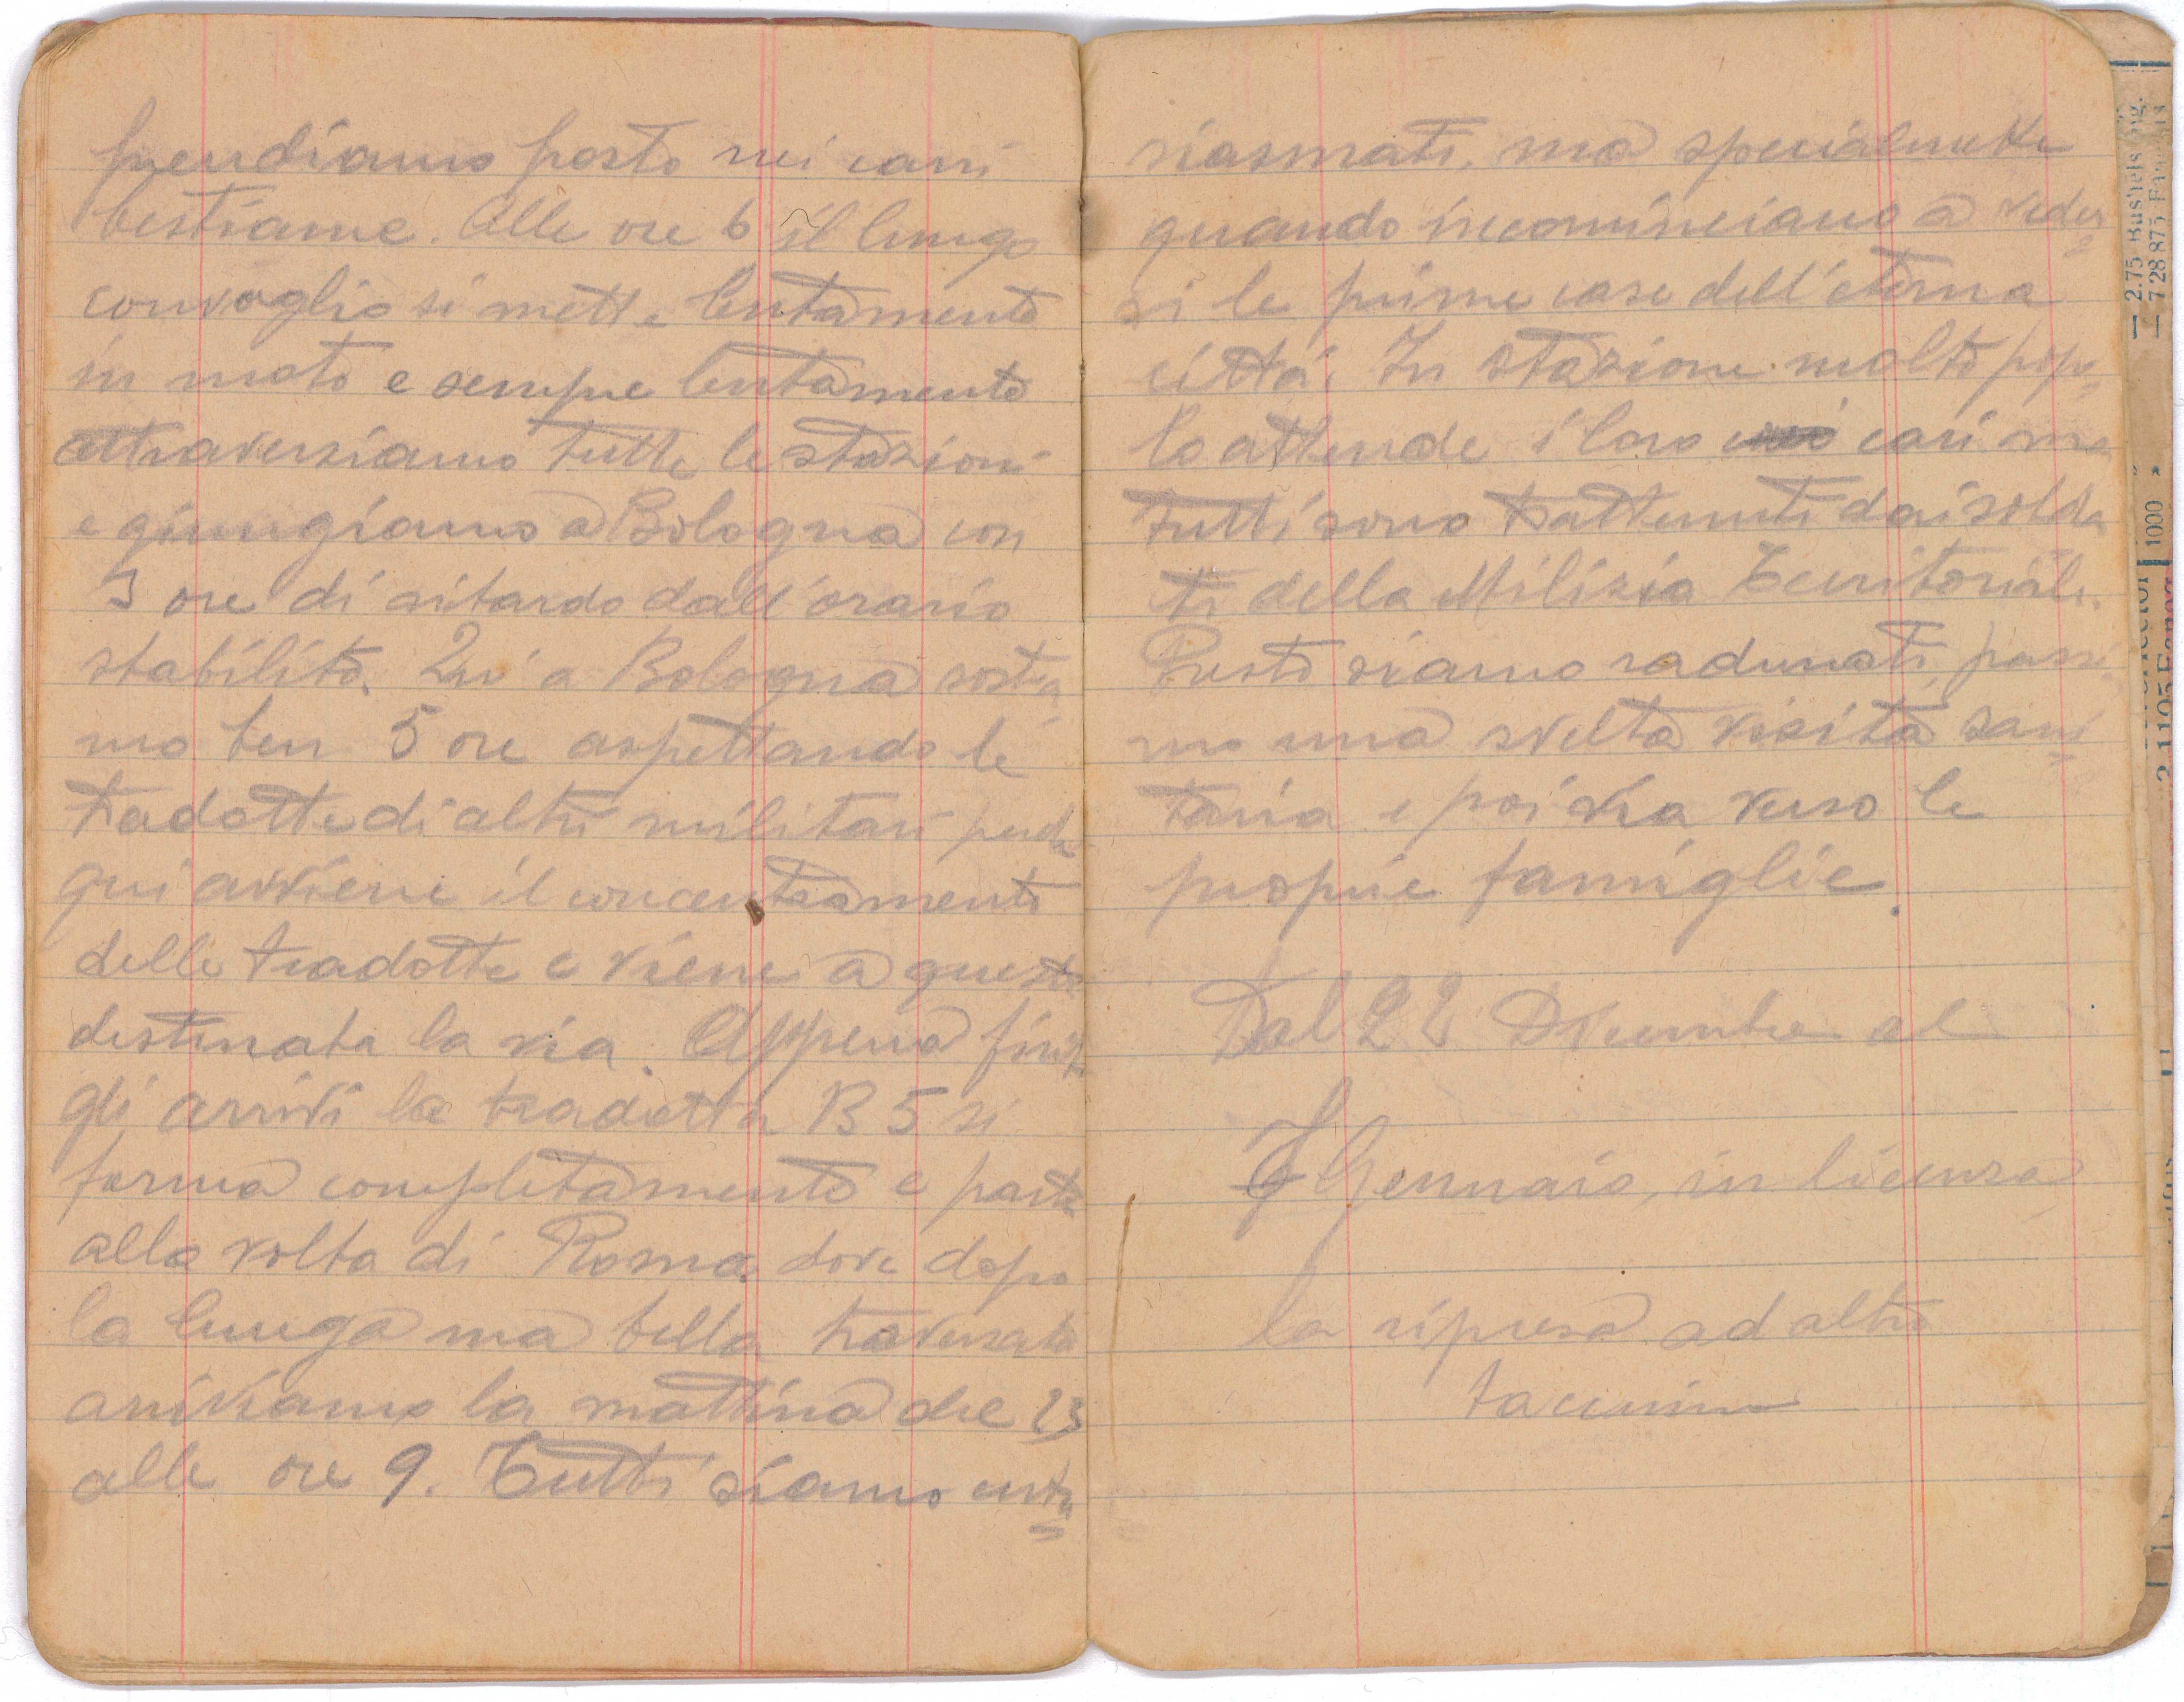 prendiamo posto nei carri
bestiame. Alle ore 6 il lungo
convoglio si mette lentamente
in moto e sempre lentamente
attraversiamo tutte le stazioni
e giungiamo a Bologna con
3 ore di ritardo dall'orario
stabilito. Qui a Bologna sostia
mo ben 5 ore aspettando le
tradotte di altri militari perchè
qui avviene il concentramento
delle tradotte e viene a queste
destinata la via. Appena finiti
gli arrivi la tradotta B 5 si
forma completamente e parte
alla volta di Roma dove dopo
la lunga ma bella traversata
arriviamo la mattina del 23
alle ore 9. Tutti siamo entu
siasmati, ma specialmente
quando incominciano a veder
si le prime case dell'eterna
città. In stazione molto popo
lo attende i loro cari ma
tutti sono trattenuti dai solda
ti della Milizia Territoriale.
Presto siamo radunati, passia
mo una svelta visita sani
taria e poi via verso le
proprie famiglie.
Dal 22 Dicembre al
7 Gennaio, in licenza
la ripresa ad altro
taccuino
2.75 Bushels
1000